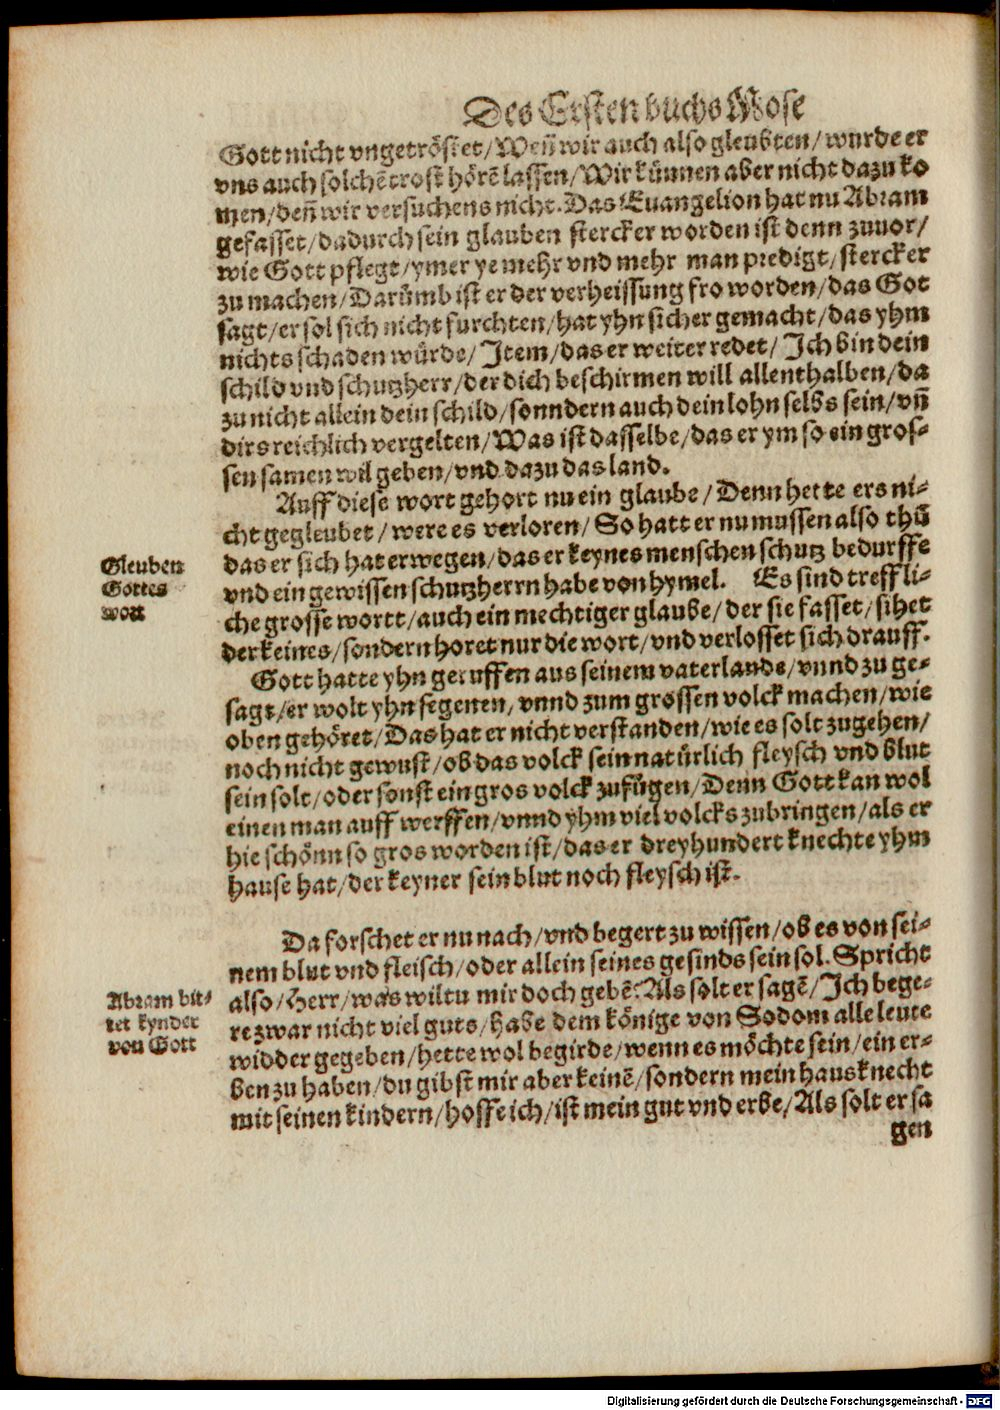 Des Ersten buchs Mose
Gott nicht vngetröstet/Weñ wir auch also gleubten/wurde er
vns auch solchẽ trost hörẽ lassen/Wir künnen aber nicht dazu ko
men/deñ wir versuchens nicht. Das Euangelion hat nu Abram
gefasset/dadurch sein glauben stercker worden ist denn zuuor/
wie Gott pflegt/ymer ye mehr vnd mehr man predigt/stercker
zu machen/Darümb ist er der verheissung fro worden/das Got
sagt/er sol sich nicht furchten/hat yhn sicher gemacht/das yhm
nichts schaden würde/Item/das er weiter redet/Ich bin dein
schild vnd schutzherr/der dich beschirmen will allenthalben/da
zu nicht allein dein schild/sonndern auch dein lohn selbs sein/vñ
dirs reichlich vergelten/Was ist dasselbe/das er ym so ein gros-
sen samen wil geben/vnd dazu das land.
Auff diese wort gehort nu ein glaube/Denn hette ers ni-
cht gegleubet/were es verloren/So hatt er nu mussen also thũ
Gleuben
Gottes
wort
das er sich hat erwegen/das er keynes menschen schutz bedurffe
vnd ein gewissen schutzherrn habe von hymel. Es sind treffli-
che grosse wortt/auch ein mechtiger glaube/der sie fasset/sihet
der keines/sondern horet nur die wort/vnd verlosset sich drauff.
Gott hatte yhn geruffen aus seinem vaterlande/vnnd zu ge-
sagt/er wolt yhn segenen/vnnd zum grossen volck machen/wie
oben gehöret/Das hat er nicht verstanden/wie es solt zugehen/
noch nicht gewust/ob das volck sein natürlich fleysch vnd blut
sein solt/oder sonst ein gros volck zufügen/Denn Gott kan wol
einen man auff werffen/vnnd yhm viel volcks zubringen/als er
hie schönn so gros worden ist/das er dreyhundert knechte yhm
hause hat/der keyner sein blut noch fleysch ist.
Da forschet er nu nach/vnd begert zu wissen/ob es von sei-
nem blut vnd fleisch/oder allein seines gesinds sein sol. Spricht
Abram bit-
tet kynder
von Gott
also/Herr/was wiltu mir doch gebẽ? Als solt er sagẽ/Ich bege-
re zwar nicht viel guts/habe dem könige von Sodom alle leute
widder gegeben/hette wol begirde/wenn es möchte sein/ein er-
ben zu haben/du gibst mir aber keinẽ/sondern mein hausknecht
mit seinen kindern/hoffe ich/ist mein gut vnd erbe/Als solt er sa
gen
Digitalisierung gefördert durch die Deutsche Forschungsgemeinschaft - DFG